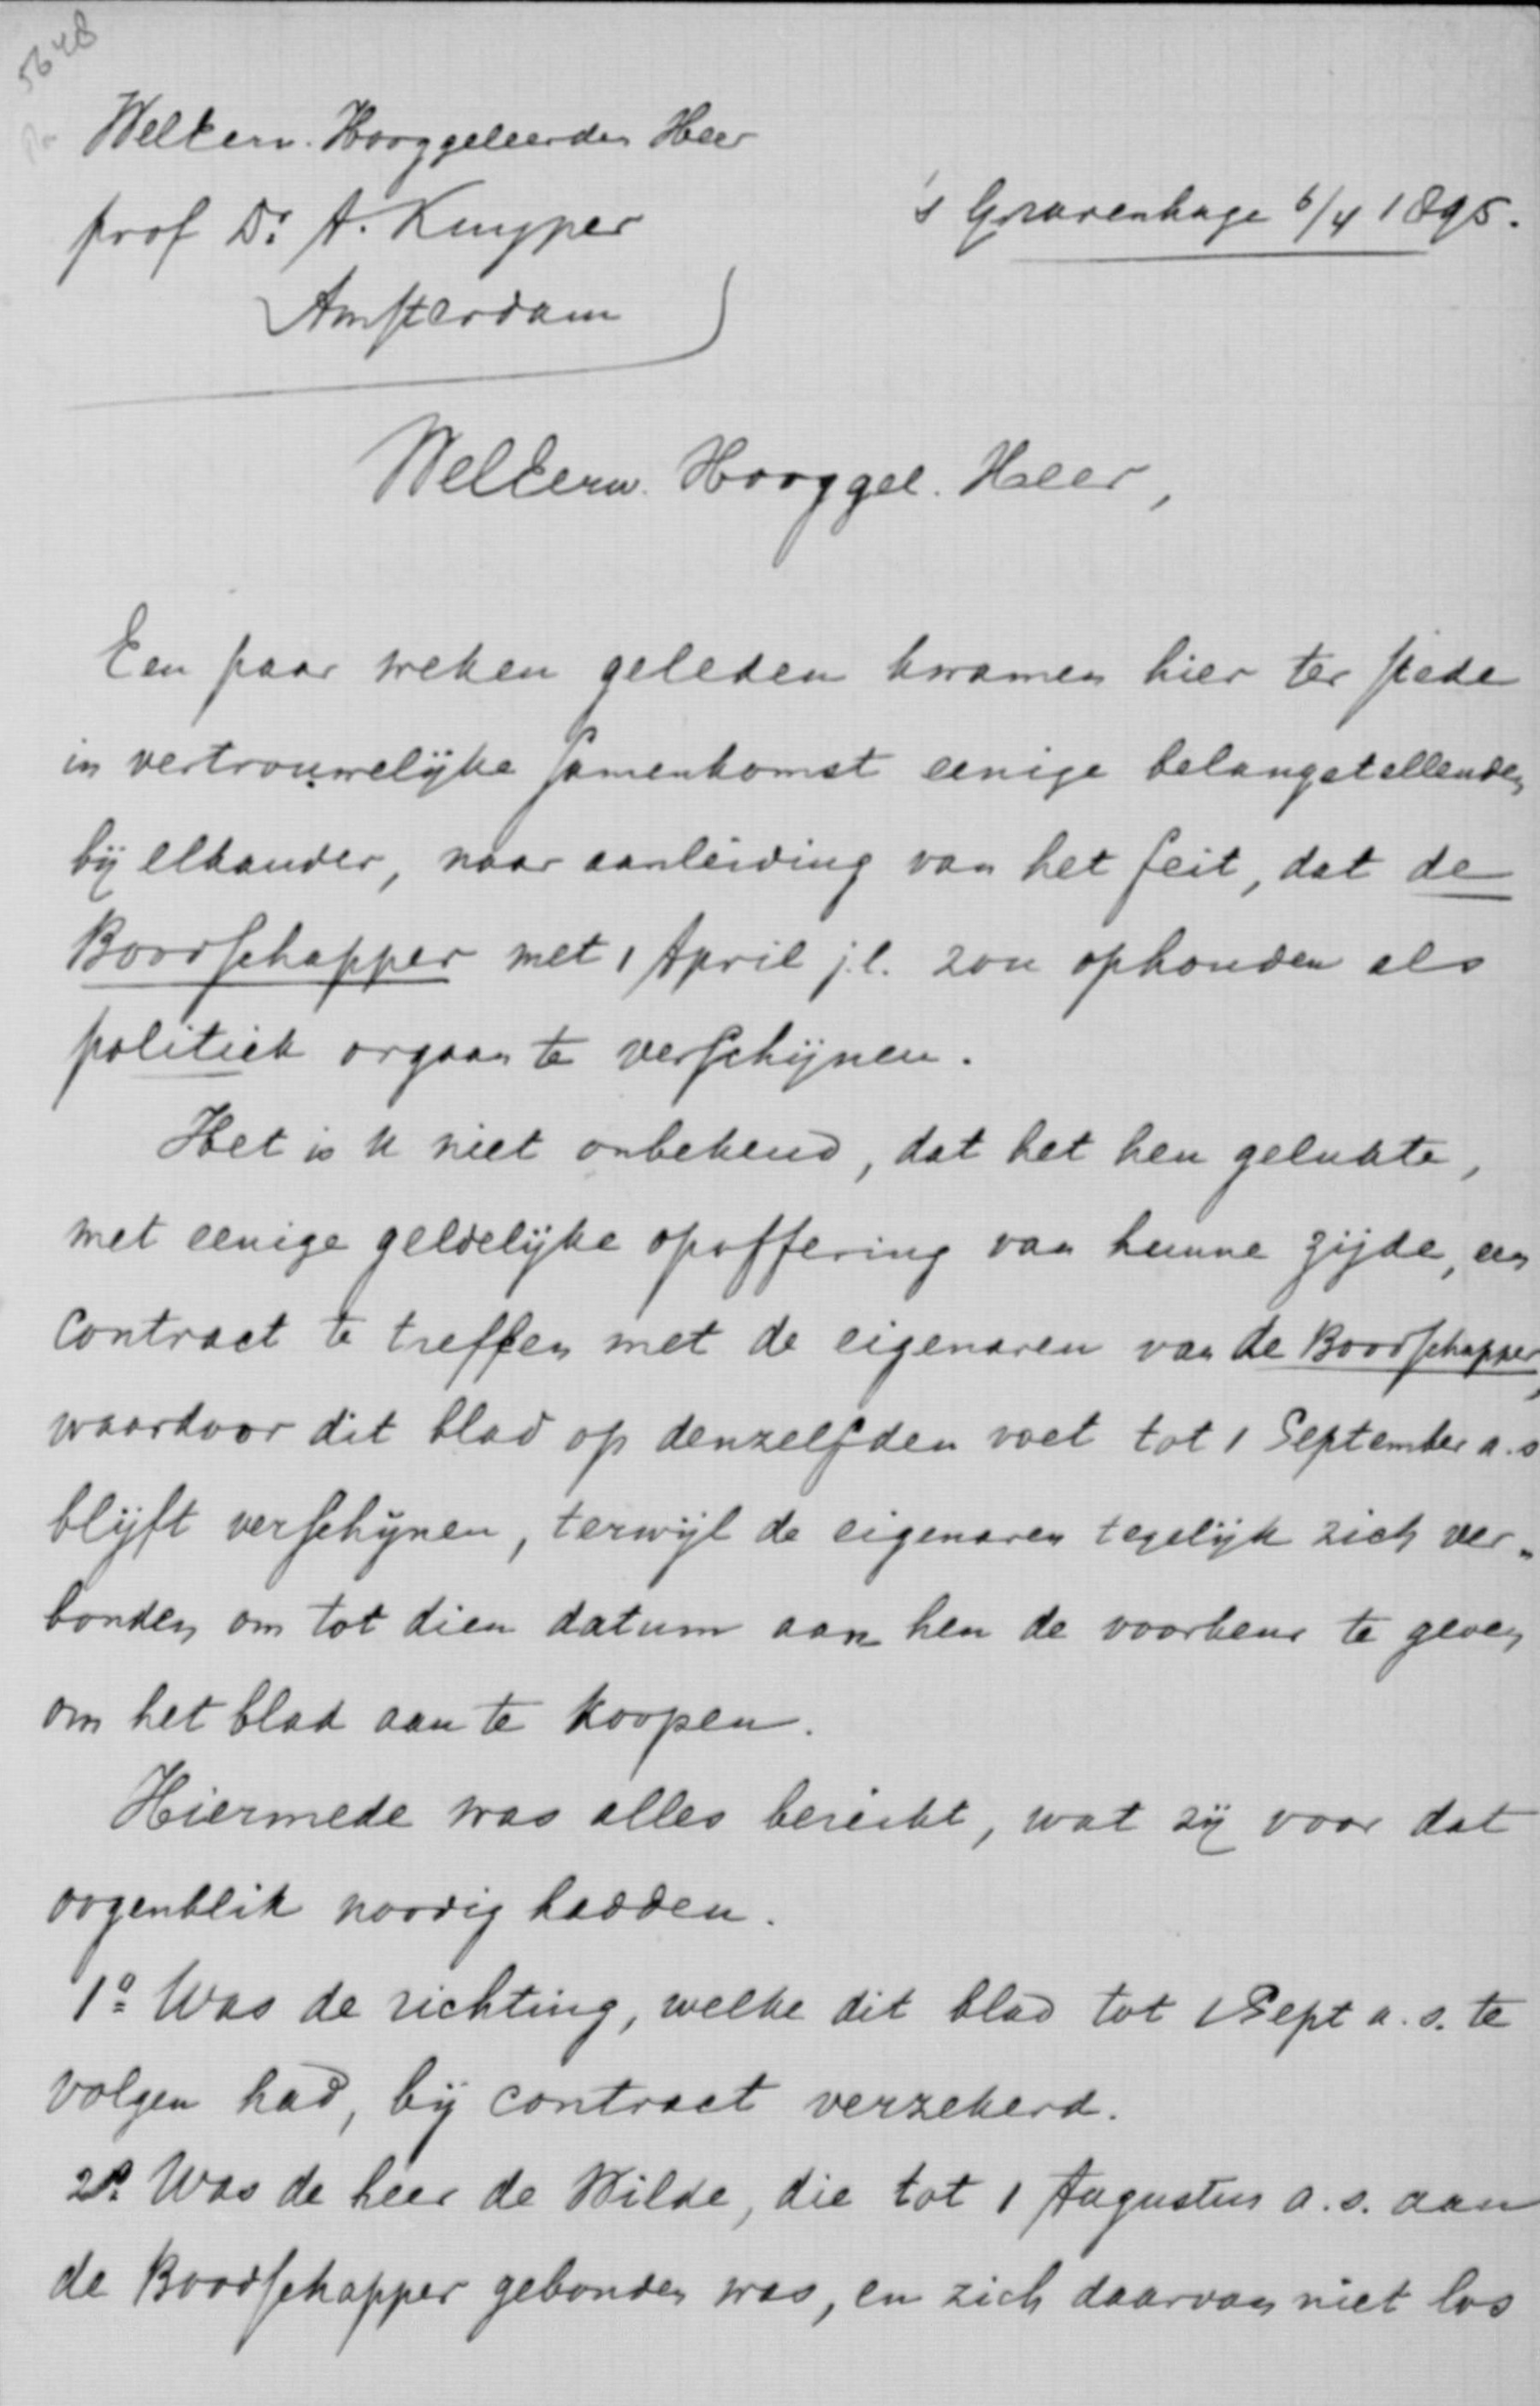 5648
WelEerw. Hooggeleerden Heer
prof Dr. A. Kuyper
Amsterdam
's Gravenhage 6/4 1895.
WelEerw. Hooggel. Heer,
Een paar weken geleden kwamen hier ter stede
in vertrouwelijke samenkomst eenige belangstellenden
bij elkander, naar aanleiding van het feit, dat de
Boodschapper met 1 April j.l. zou ophouden als
politiek orgaan te verschijnen.
Het is U niet onbekend, dat het hen gelukte,
met eenige geldelijke opoffering van hunne zijde, een
contract te treffen met de eigenaren van de Boodschapper,
waardoor dit blad op denzelfden voet tot 1 September a.s
blijft verschijnen, terwijl de eigenaren tegelijk zich ver-
bonden om tot dien datum aan hen de voorkeur te geven
om het blad aan te koopen.
Hiermede was alles bereikt, wat zij voor dat
oogenblik noodig hadden.
1o Was de richting, welke dit blad tot 1 Sept a.s. te
volgen had, bij contract verzekerd.
2o. Was de heer de Wilde, die tot 1 Augustus a.s. aan
de Boodschapper gebonden was, en zich daarvan niet los